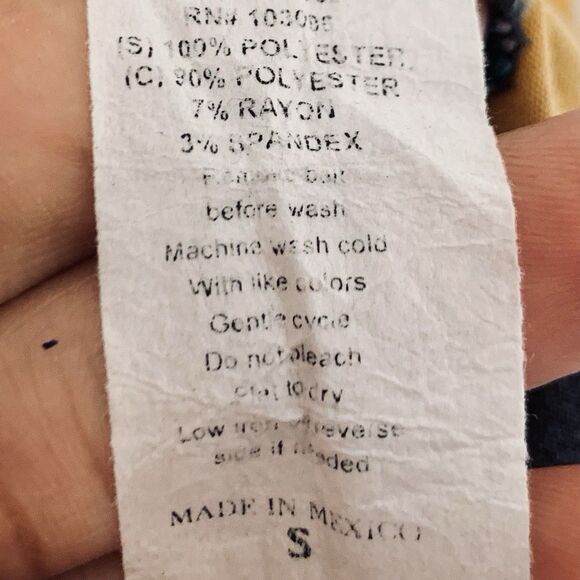 RN# 103086
(S) 100% POLYESTER
(C) 90% POLYESTER
7% RAYON
3% SPANDEX
Remove belt
before wash
Machine wash cold
With like colors
Gentle cycle
Do not bleach
Flat to dry
Low iron reverse
side if needed
MADE IN MEXICO
S